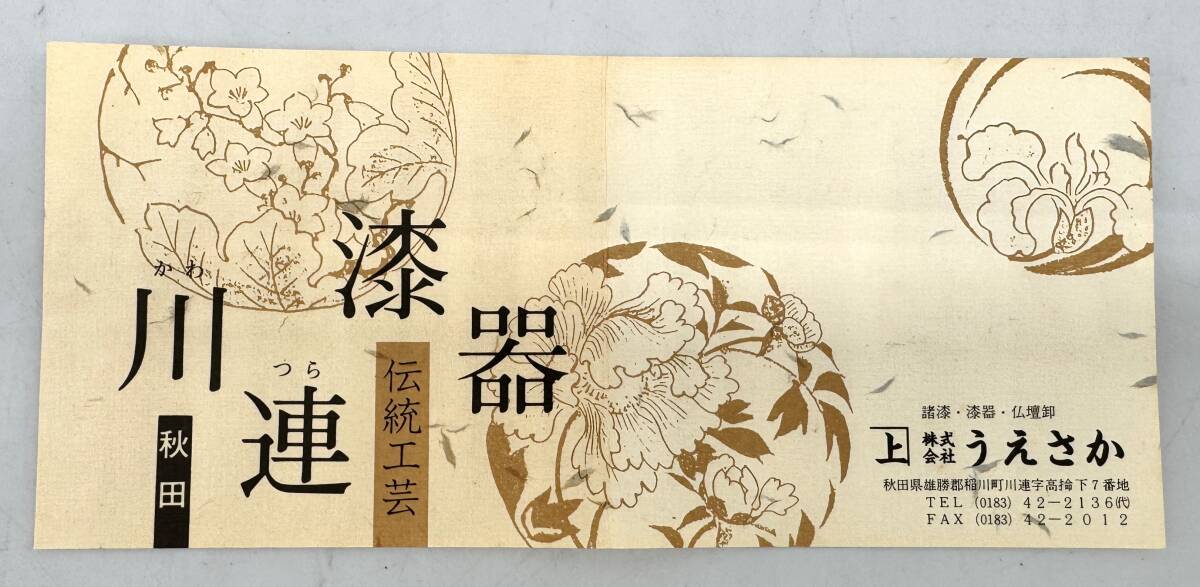 かわ
川
つら
連
漆
器
秋田
伝統工芸
諸漆・漆器・仏壇卸
上 株式会社 うえさか
秋田県雄勝郡稲川町川連字高掵下7番地
TEL (0183) 42－2136㈹
FAX (0183) 42－2012